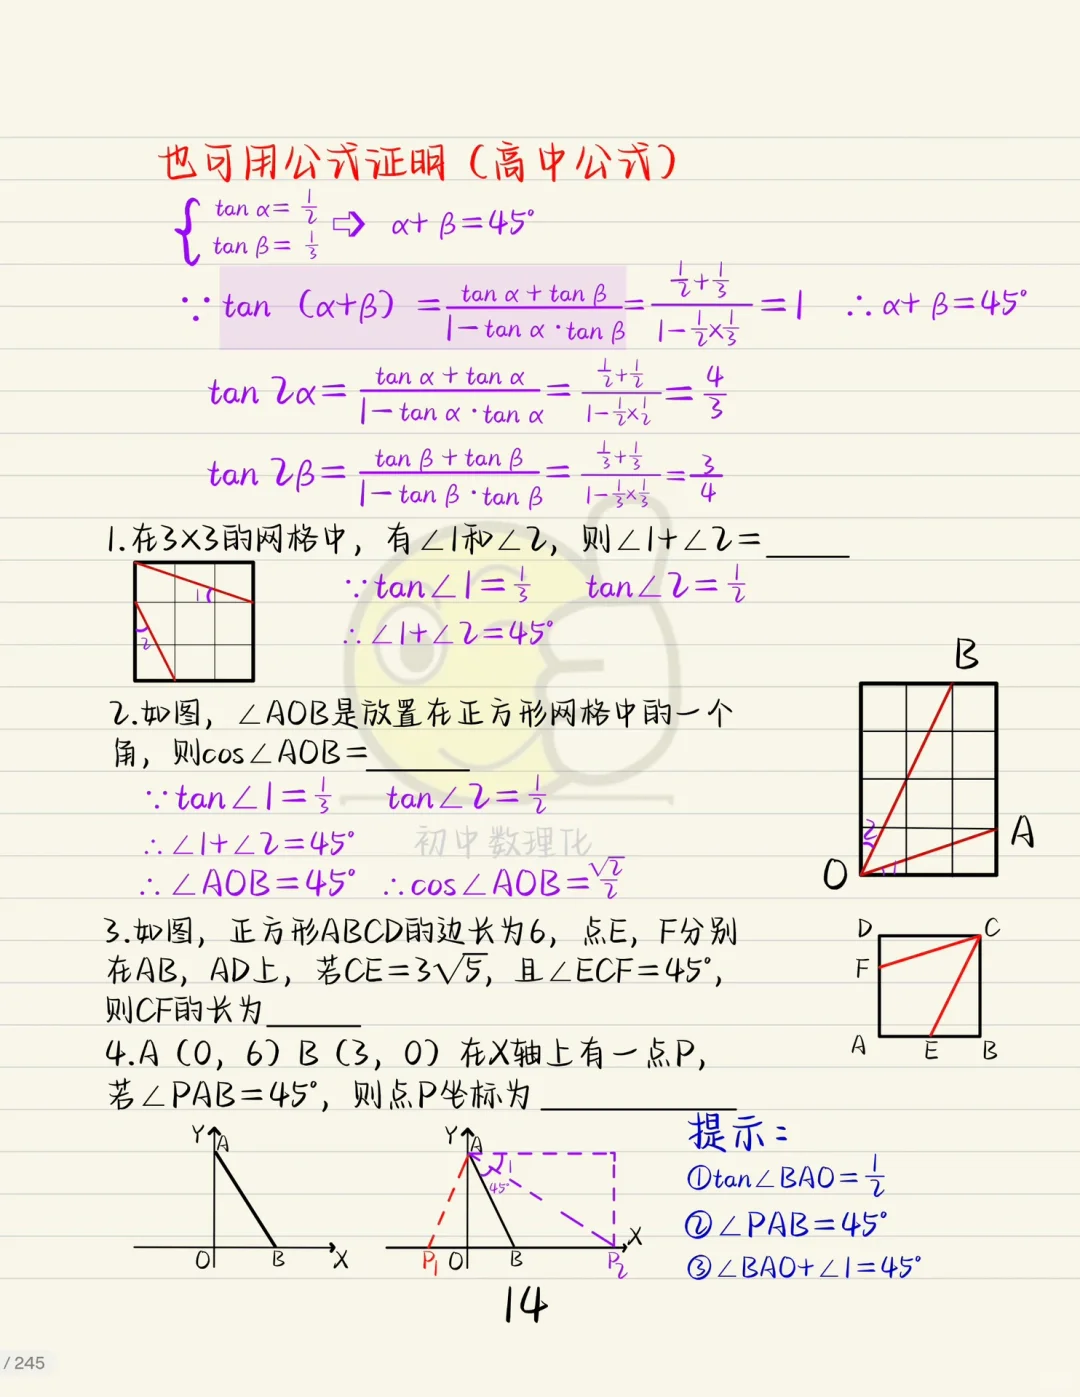 也可用公式证明（高中公式）
{ tan α = 1/2
tan β = 1/3 ⇨ α + β = 45°
∵ tan （α+β） = (tan α + tan β)/(1 − tan α · tan β) = (1/2 + 1/3)/(1 − 1/2 × 1/3) = 1 ∴ α + β = 45°
tan 2α = (tan α + tan α)/(1 − tan α · tan α) = (1/2 + 1/2)/(1 − 1/2 × 1/2) = 4/3
tan 2β = (tan β + tan β)/(1 − tan β · tan β) = (1/3 + 1/3)/(1 − 1/3 × 1/3) = 3/4
1.在3×3的网格中，有∠1和∠2，则∠1+∠2=____
∵tan∠1=1/3 tan∠2=1/2
∴∠1+∠2=45°
1
2
2.如图，∠AOB是放置在正方形网格中的一个
角，则cos∠AOB=____
∵tan∠1=1/3 tan∠2=1/2
∴∠1+∠2=45°
∴∠AOB=45° ∴cos∠AOB=√2/2
初中数理化
B
A
O
2
1
3.如图，正方形ABCD的边长为6，点E，F分别
在AB，AD上，若CE=3√5，且∠ECF=45°，
则CF的长为____
D C
F
A E B
4.A（0，6）B（3，0）在X轴上有一点P，
若∠PAB=45°，则点P坐标为____
Y A
O B X
Y A
1
45°
P₁ O B P₂ X
提示：
①tan∠BAO=1/2
②∠PAB=45°
③∠BAO+∠1=45°
14
/ 245